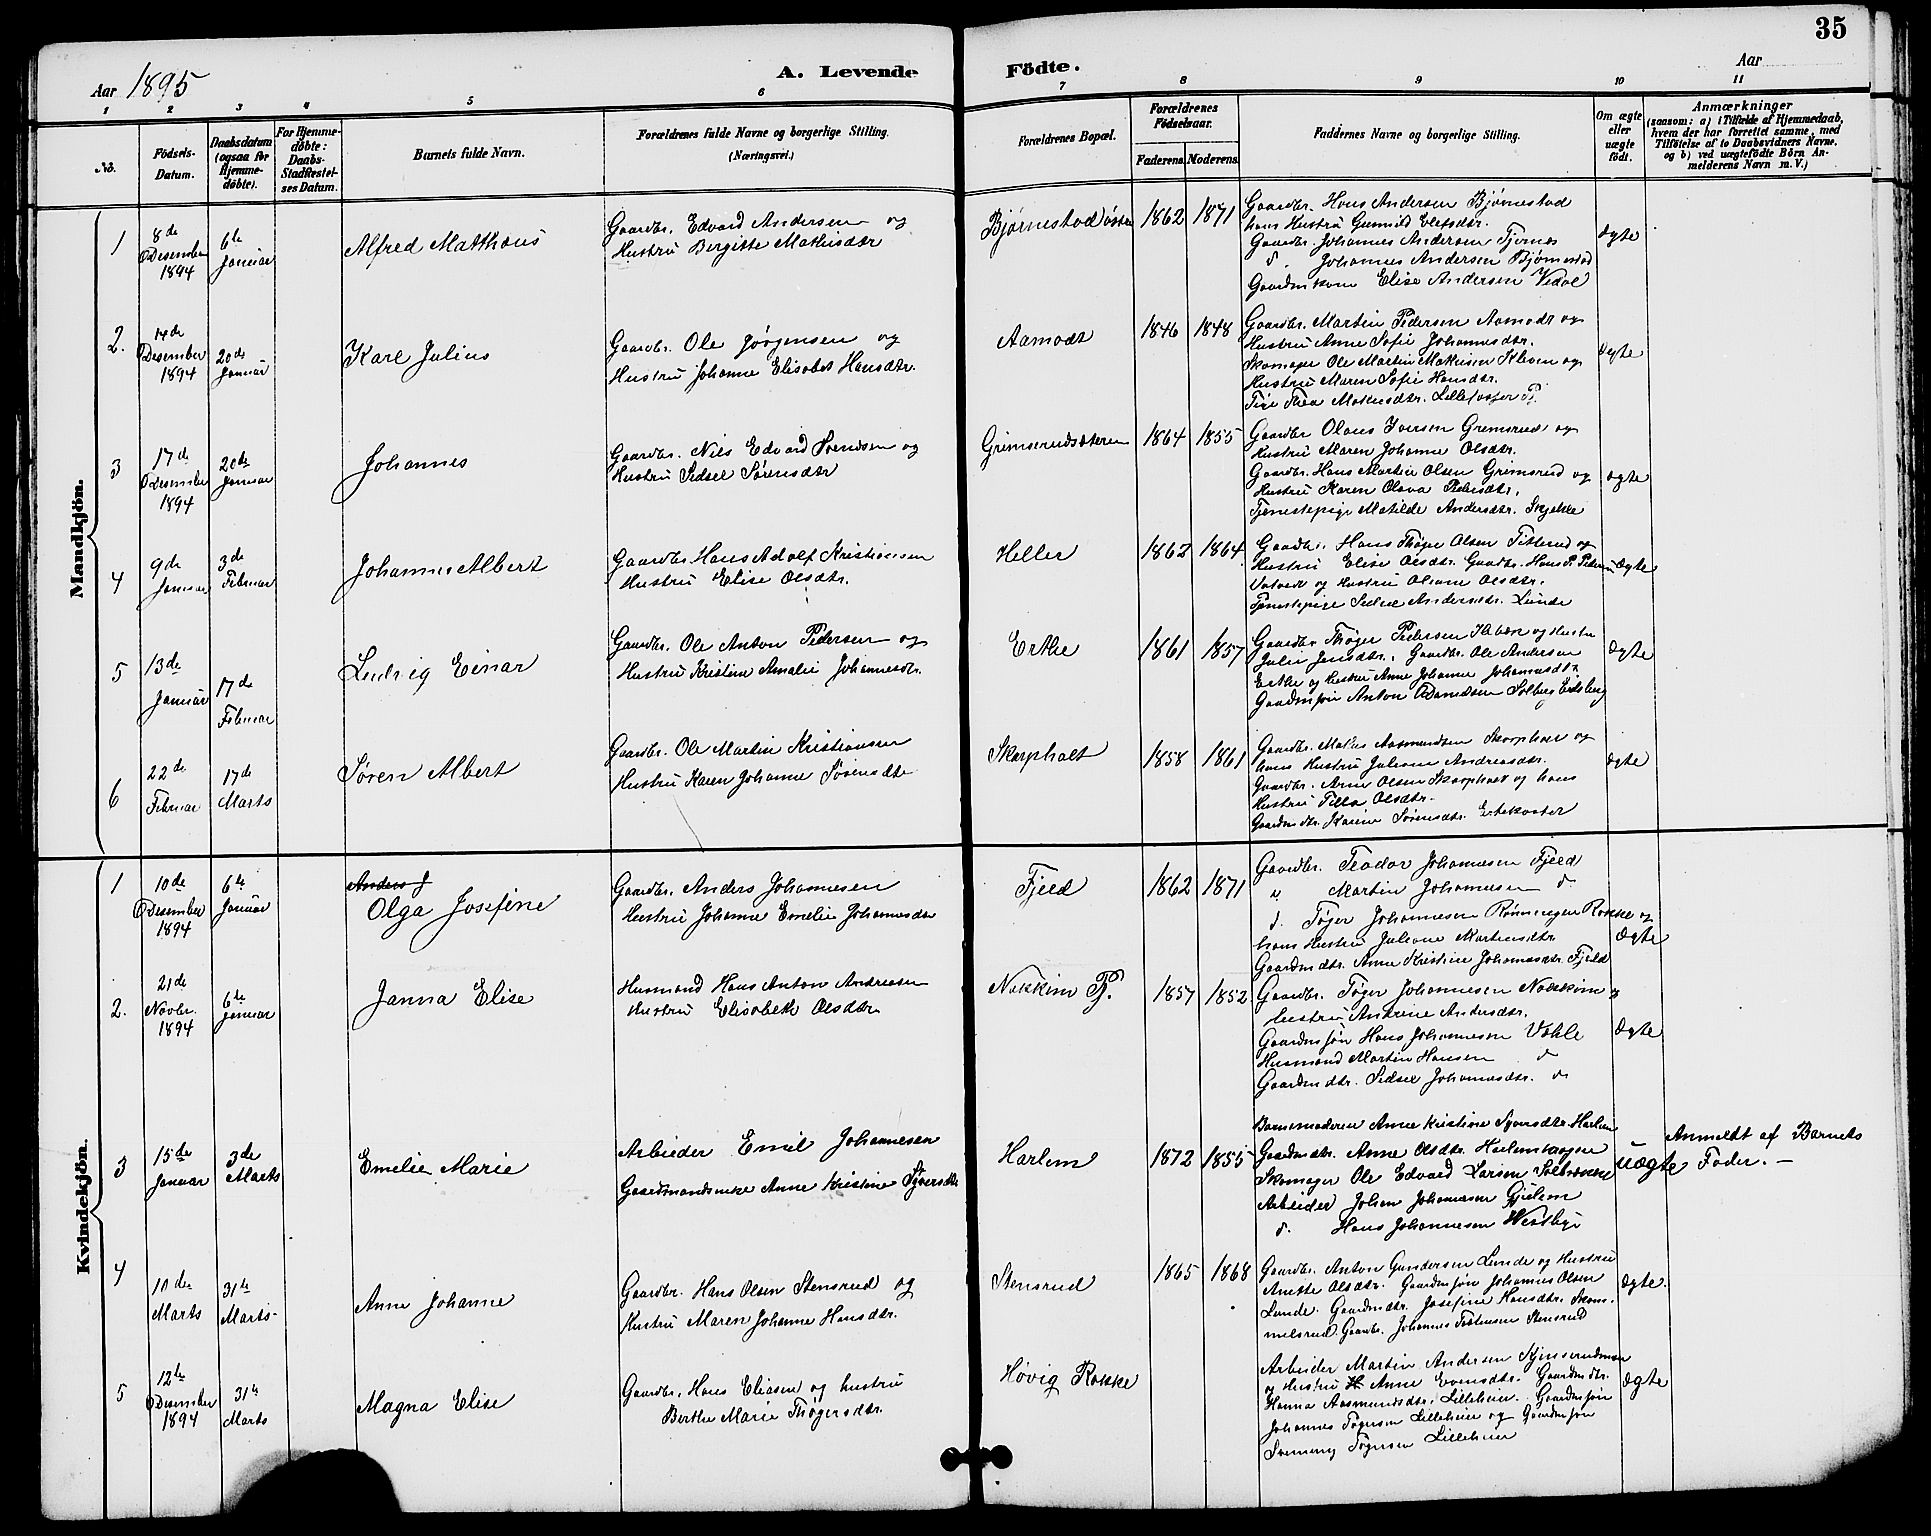 35
Aar 1895
A. Levende Födte.
Aar
1 2 3 4 5 6 7 8 9 10 11
No.
Födsels-Datum.
Daabsdatum (ogsaa for Hjemme-döbte).
For Hjemme-döbte: Daabs-Stadfæstel-ses Datum.
Barnets fulde Navn.
Forældrenes fulde Navne og borgerlige Stilling.
(Næringsvei.)
Forældrenes Bopæl.
Forældrenes Födselsaar.
Faderens. Moderens.
Faddernes Navne og borgerlige Stilling.
Om ægte eller uægte födt.
Anmærkninger
(saasom: a) i Tilfælde af Hjemmedaab, hvem der har forrettet samme, med Tilföielse af to Daabsvidners Navne, og b) ved uægtefödte Börn Anmelderens Navn m. V.)
Mandkjön.
1
8de Desember 1894
6te Januar
Alfred Matthæus
Gaardbr. Edvard Andersen og
Hustru Bergitte Mathisdtr
Bjørnestad østre
1862 1871
Gaardbr. Hans Andersen Bjørnestad
hans Hustru Gunnild Elefsdtr.
Gaardbr. Johannes Andersen Tjernes
d. Johannes Andersen Bjørnestad
Gaardmkone Elise Andersen Vedal
ægte
2.
14de Desember 1894
20de Januar
Karl Julius
Gaardbr. Ole Jørgensen og
Hustru Johanne Elisabet Hansdtr.
Aamodt
1846 1848
Gaardbr. Martin Pedersen Aamodt og
Hustru Anne Sofie Johannesdtr.
Skomager Ole Martin Mathisen og
Hustru Maren Sofie Hansdtr.
Pige Thea Mathisdtr.
ægte
3
17de Desember 1894
20de Januar
Johannes
Gaardbr. Nils Edvard Svendsen og
Hustru Sedsel Sørensdtr
Grimsrudsæteren
1864 1855
Gaardbr Olaus Iversen Grimsrud og
Hustru Maren Johanne Olsdtr.
Gaardbr. Hans Martin Olsen Grimsrud og
Hustru Karen Olava Pedersdtr.
Tjenestepige Matilde Andersdtr. Skjekle
ægte
4
9de Januar
3de Februar
Johannes Albert
Gaardbr. Hans Adolf Kristiansen
Hustru Elise Olsdtr.
Heller
1862 1864
Gaardbr. Hans Thøger Olsen Titterud og
Hustru Elise Olsdtr. Gaardbr. Hans P. Pedersen
og Hustru Oliane Olsdtr.
Tjenestepige Sedsel Andersdtr. Lunde
ægte
5
13de Januar
17de Februar
Ludvig Einar
Gaardbr. Ole Anton Pedersen og
Hustru Kristine Amalie Johannesdtr.
Erthe
1861 1857
Gaardbr Thøger Pedersen og Hustru
Julie Jensdtr. Gaardbr. Ole Andersen
Erthe og Hustru Anne Johanne Johannesdtr.
Gaardmsøn Anton Solberg Eidsberg
ægte
6
22de Februar
17de Marts
Søren Albert
Gaardbr. Ole Martin Kristiansen
Hustru Karen Johanne Sørensdtr
Skarpholt
1858 1861
Gaardbr. Mathis Aasmundsen Skarpholt og
hans Hustru Juliane Andreasdtr.
Gaardbr. Arne Olsen Skarpholt og hans
Hustru Tilla Olsdtr.
Gaardmdtr. Karine Sørensdtr.
ægte
Kvindekjön.
1
10de Desember 1894
6te Januar
Anders J
Olga Josefine
Gaardbr. Anders Johannesen
Hustru Johanne Emelie Johannesdtr
Fjeld
1862 1871
Gaardbr. Teodor Johannesen Fjeld
" Martin Johannesen d.
d. Tøger Johannesen Rønningen Rokke og
hans Hustru Juliane Martinsdtr.
Gaardmdtr. Anne Kristine Johannesdtr. Fjeld
ægte
2.
21de Novbr. 1894
6te Januar
Janna Elise
Husmand Hans Anton Andreasen
Hustru Elisabeth Olsdtr
Nokkim P.
1857 1852
Gaardbr. Tøger Johannesen Nokkim og
Hustru Andrine Andersdtr.
Gaardmsøn Hans Johannesen Vohle
Husmand Martin Hansen d
Gaardmdtr. Sedsel Johannesdtr. d
ægte
3
15de Januar
3de Marts
Emelie Marie
Arbeider Emil Johannesen
Gaardmandsenke Anne Kristine Syversdtr
Harlem
1872 1855
Barnemoderen Anne Kristine Syversdtr. Harlem
Gaardmdtr. Anne Olsdtr. Harlemhaugen
Skomager Ole Edvard Larsen Solbrække
Arbeider Johan Johannesen Gjølem
d. Hans Johannesen Westbye
uægte
Anmeldt af Barnets
Fader. —
4
10de Marts
31te Marts
Anne Johanne
Gaardbr. Hans Olsen Stensrud og
Hustru Maren Johanne Hansdtr.
Stensrud
1865 1868
Gaardbr. Anton Gundersen Lunde og Hustru
Anette Olsdtr. Gaardmsøn Johannes Olsen
Lunde. Gaardmdtr. Josefine Hansdtr. Skom-
melsrud. Gaardbr. Johannes Stensrud
ægte.
5
12te Desember 1894
31te Marts
Magna Elise
Gaardbr. Hans Eliasen og hustru
Berthe Marie Thøgersdtr.
Høvig Rokke
1862
Arbeider Martin Andersen
og Hustru Anne Evensdtr. Gaardmdtr.
Hanna Aasmundsdtr. Lilleheier. Gaardmsøn
Johannes Tøgersen Lilleheier og Gaardmsøn
Tøgersen Lilleheier
ægte